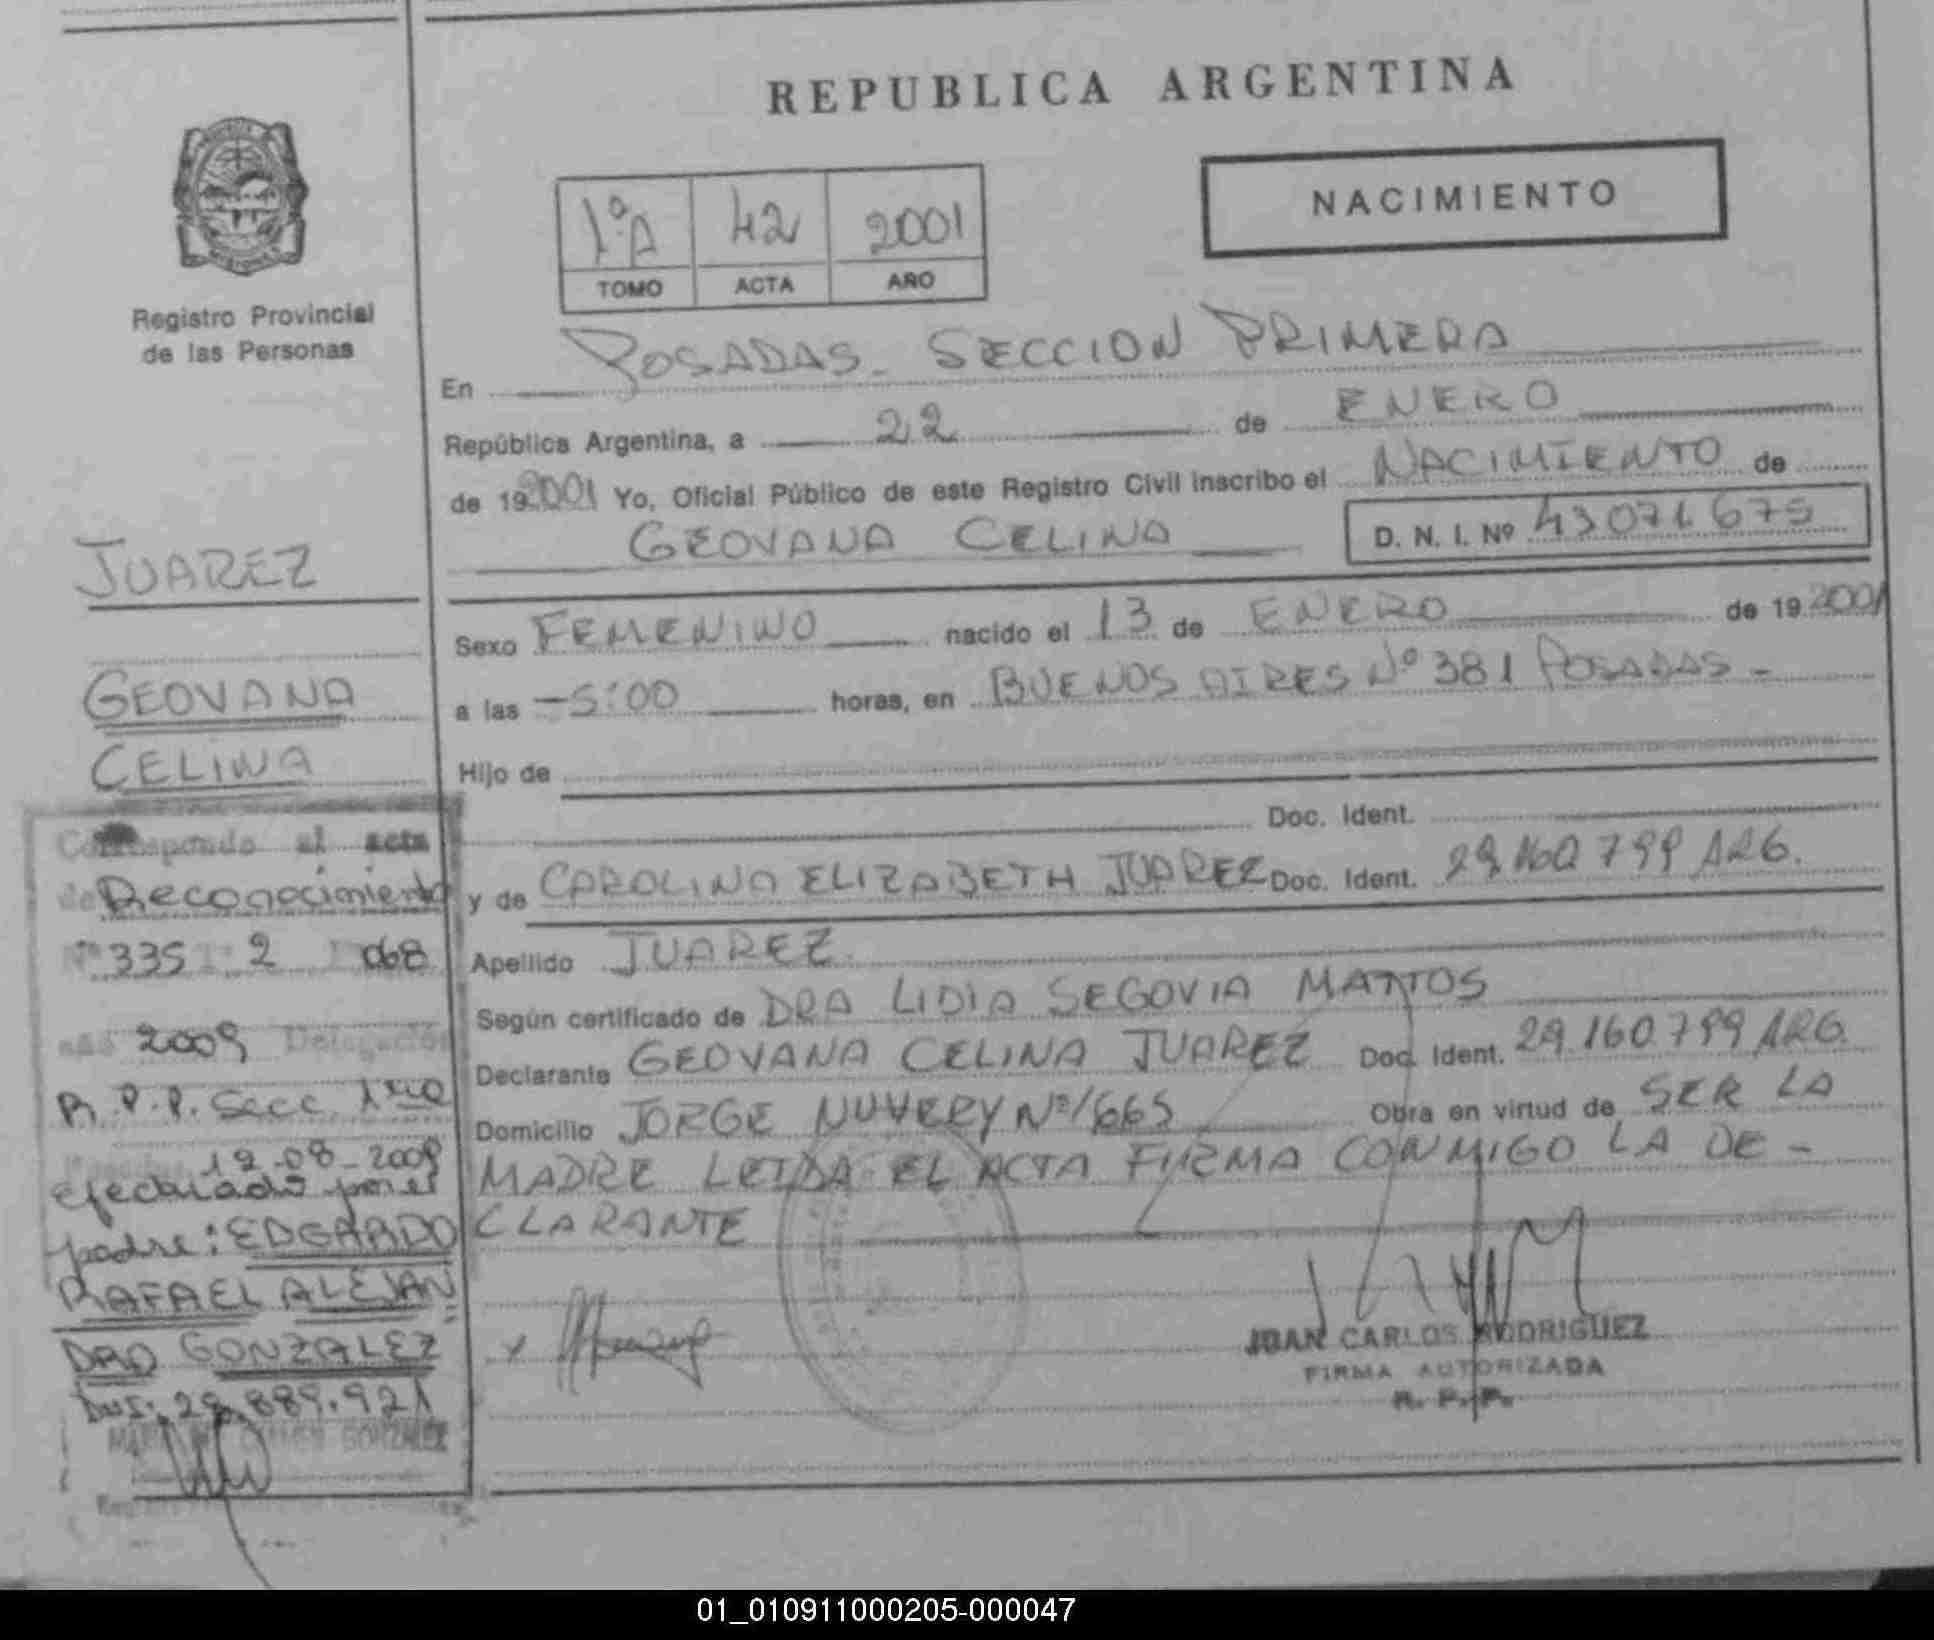 REPUBLICA ARGENTINA
NACIMIENTO
1ºA 42 2001
TOMO ACTA AÑO
Registro Provincial
de las Personas
En POSADAS. SECCION PRIMERA
República Argentina, a 22 de ENERO
de 19 2001 Yo, Oficial Público de este Registro Civil inscribo el NACIMIENTO de
GEOVANA CELINA D. N. I. Nº 43071675
Sexo FEMENINO nacido el 13 de ENERO de 19 2001
a las -5:00 horas, en BUENOS AIRES Nº 381 POSADAS -
Hijo de
Doc. Ident.
y de CAROLINA ELIZABETH JUAREZ Doc. Ident. 29.160.799 ARG.
Apellido JUAREZ
Según certificado de DRA LIDIA SEGOVIA MATTOS
Declarante GEOVANA CELINA JUAREZ Doc. Ident. 29.160.799 ARG.
Domicilio JORGE Nº 1665 Obra en virtud de SER LA
MADRE LEIDA EL ACTA FIRMA CONMIGO LA DE -
CLARANTE
JUAN CARLOS RODRIGUEZ
FIRMA AUTORIZADA
R. P. P.
JUAREZ
GEOVANA
CELINA
Corresponde al acta
de Reconocimiento
Nº 335 2 068
año 2009 Delegación
R.P.P. Secc. 1ra
efectuado por el
padre: EDGARDO
RAFAEL ALEJAN
DRO GONZALEZ
GONZALEZ
01_010911000205-000047